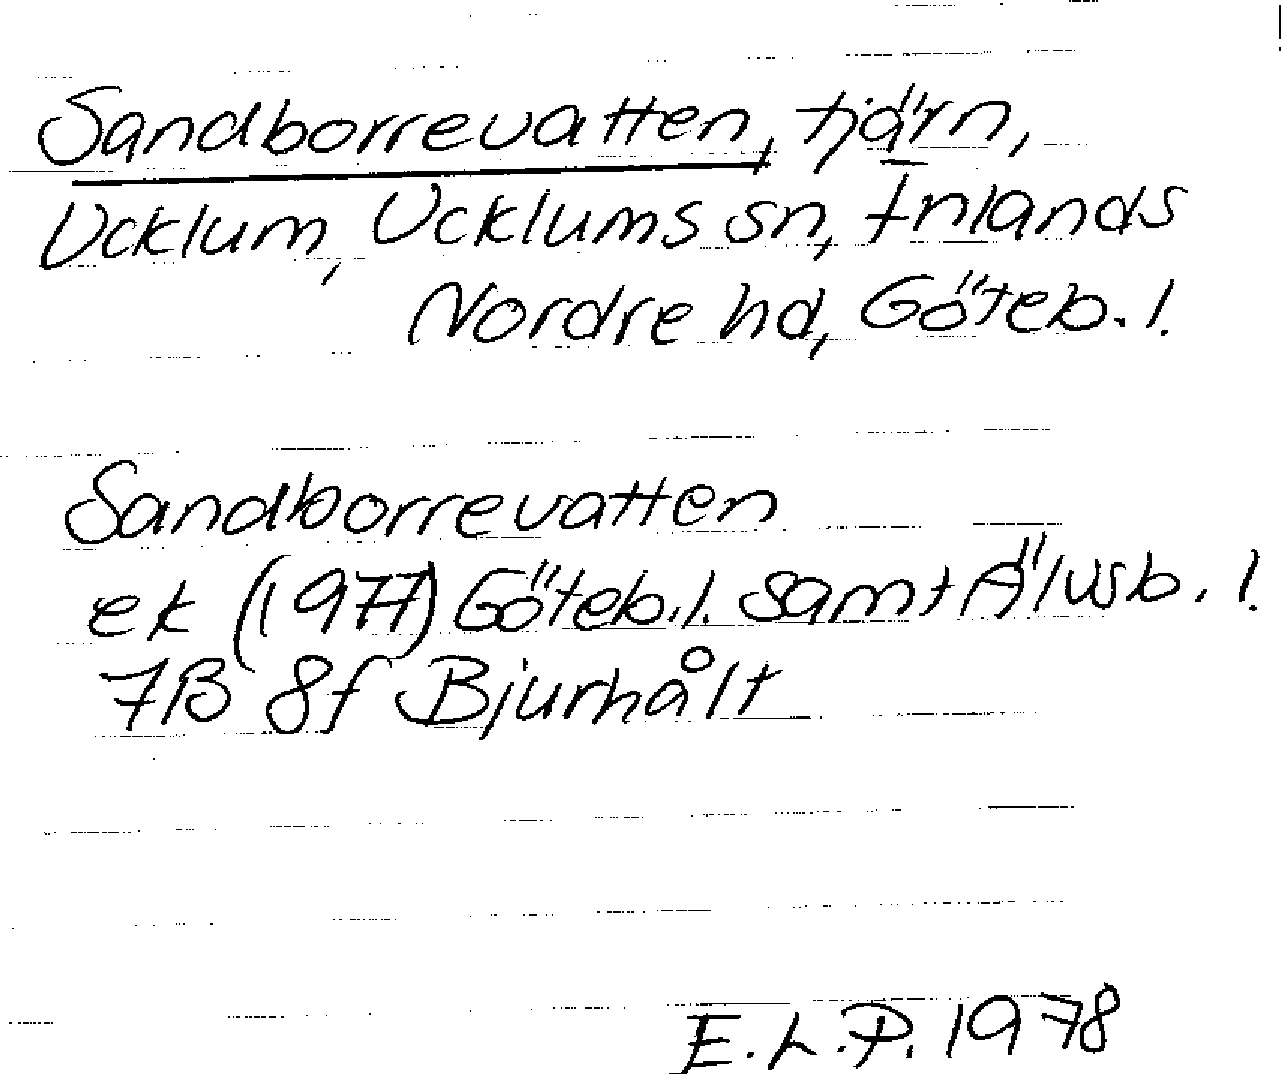 Sandborrevatten, tjärn,
Ucklum, Ucklums sn, Inlands
Nordre hd, Göteb. l.
Sandborrevatten
ek (1977) Göteb. l. samt Älvsb. l.
7B 8f Bjurhålt
E. L. P. 1978